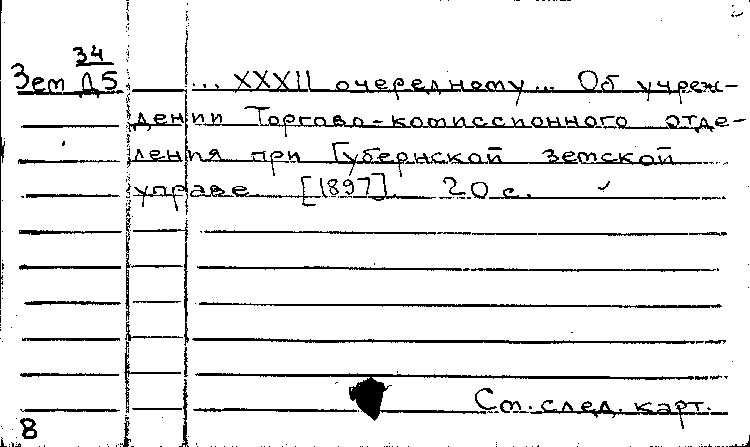 34
Зем Д5 ... XXXII очередному... Об учреж-
дении Торгово-комиссионного отде-
ления при Губернской земской
управе [1897] 20 с.
См. след. карт.
8